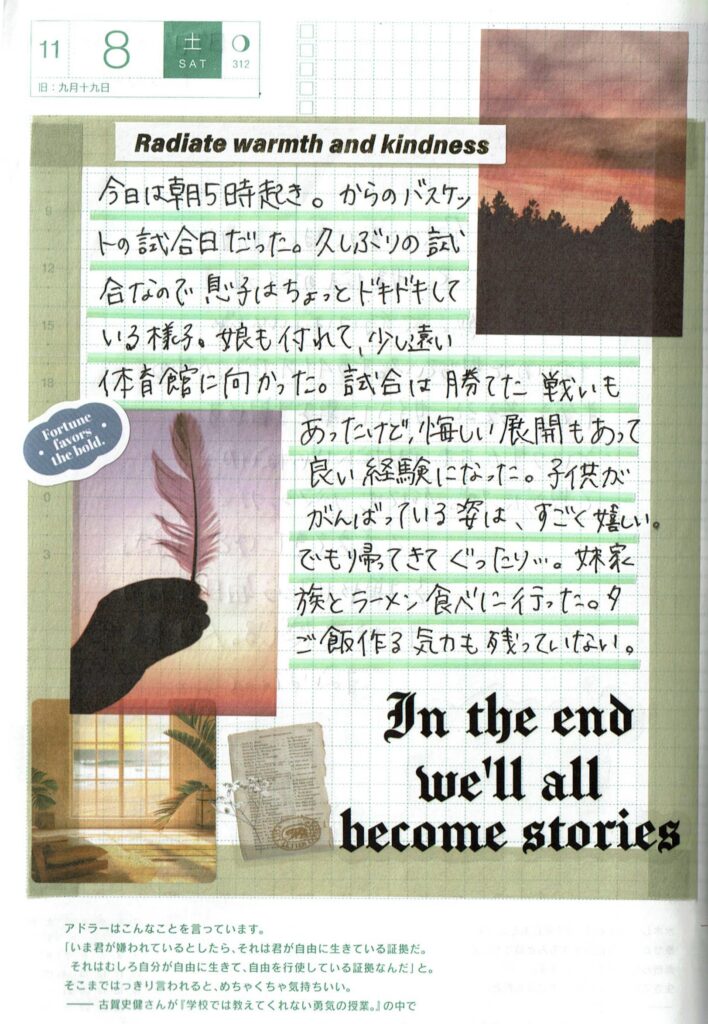 11 8 土 SAT 312
旧：九月十九日
Radiate warmth and kindness
今日は朝5時起き。からのバスケッ
トの試合日だった。久しぶりの試
合なので息子はちょっとドキドキして
いる様子。娘も付れて、少し遠い
体育館に向かった。試合は勝てた戦いも
あったけど、悔しい展開もあって
良い経験になった。子供が
がんばっている姿は、すごく嬉しい。
でもり帰ってきてぐったり…。妹家
族とラーメン食べに行った。夕
ご飯作る気力も残っていない。
9
12
15
18
0
3
Fortune
favors
the bold.
In the end
we'll all
become stories
アドラーはこんなことを言っています。
「いま君が嫌われているとしたら、それは君が自由に生きている証拠だ。
それはむしろ自分が自由に生きて、自由を行使している証拠なんだ」と。
そこまではっきり言われると、めちゃくちゃ気持ちいい。
―― 古賀史健さんが『学校では教えてくれない勇気の授業。』の中で